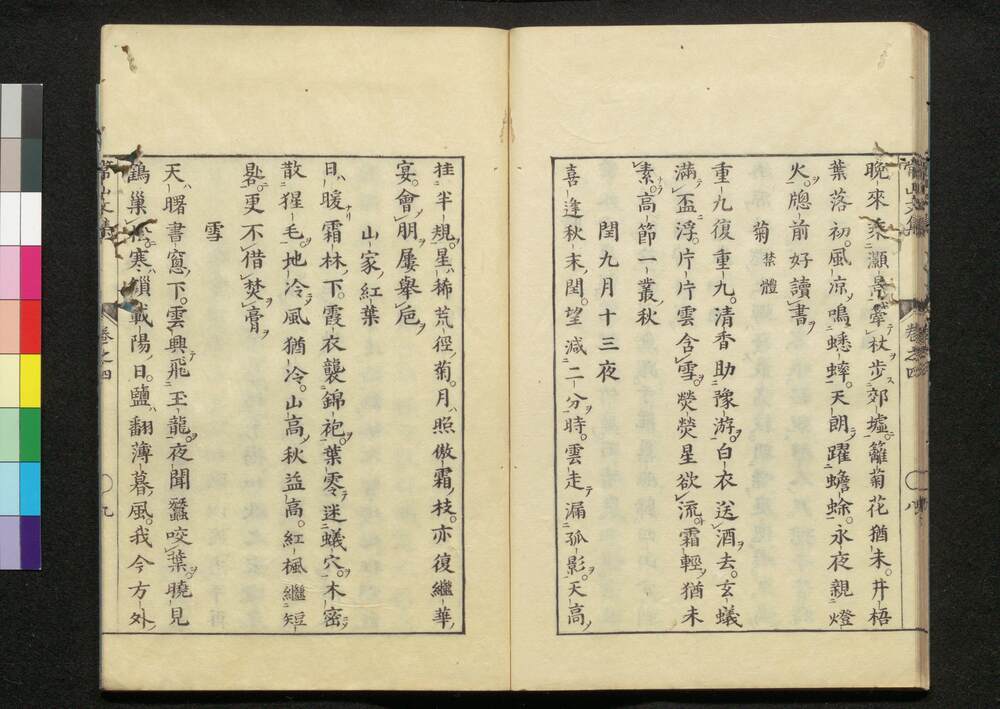 晩來乘灝景牽杖步郊墟籬菊花猶未井梧
葉落初風凉鳴蟋蟀天朗躍蟾蜍永夜親燈
火牕前好讀書
菊 禁體
重九復重九清香助豫游白衣送酒去玄蟻
滿盃浮片片雲含雪熒熒星欲流霜輕猶未
素高節一叢秋
閏九月十三夜
喜逢秋末閏望減二分時雲走漏孤影天高
桂半規星稀荒徑菊月照傲霜枝亦復繼華
宴會朋屢擧巵
山家紅葉
日暖霜林下霞衣襲錦袍葉零迷蟻穴木密
散猩毛地冷風猶冷山高秋益高紅楓繼短
晷更不借焚膏
雪
天曙書窓下雲興飛玉龍夜聞蠶咬葉曉見
鶴巢松寒鎖載陽日鹽翻薄暮風我今方外
卷之四
九